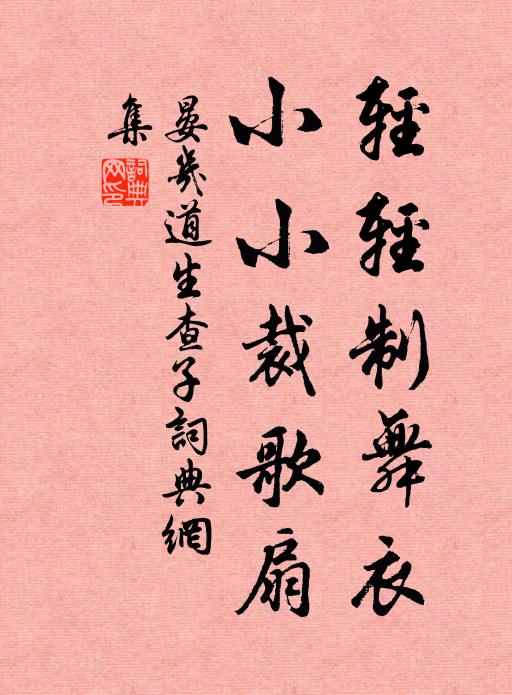 輕輕制舞衣
小小裁歌扇
晏幾道生查子詞典網
集
詞典网印